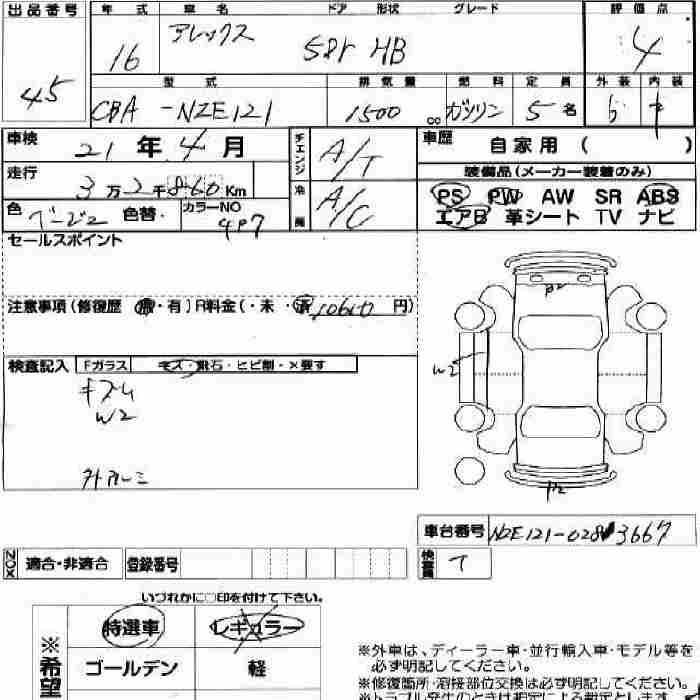 出品番号 年 式 車 名 ドア 形状 グレード 評価点
45 16 アレックス 5ドr HB 4
型 式 排気量 燃料 定員 外装 内装
CBA -NZE121 1500 cc ガソリン 5名
車検 21年 4月 チェンジ A/T 車歴 自家用 ( )
走行 3万2千860Km 冷房 A/C 装備品(メーカー装着のみ)
PS PW AW SR ABS
色 ベージュ 色替・ カラーNO 4P7 エアB 革シート TV ナビ
セールスポイント
注意事項(修復歴 無・有)R料金(・未・済 10660円)
P2
検査記入 Fガラス キズ・飛石・ヒビ割・×要す
W2
キズム
W2
P2
車台番号 NZE121-0283667
XON 適合・非適合 登録番号 検査員
いづれかに○印を付けて下さい。
※希望 特選車 レギュラー
ゴールデン 軽
※外車は、ディーラー車・並行輸入車・モデル等を
必ず明記してください。
※修復箇所・溶接部位交換は必ず明記してください。